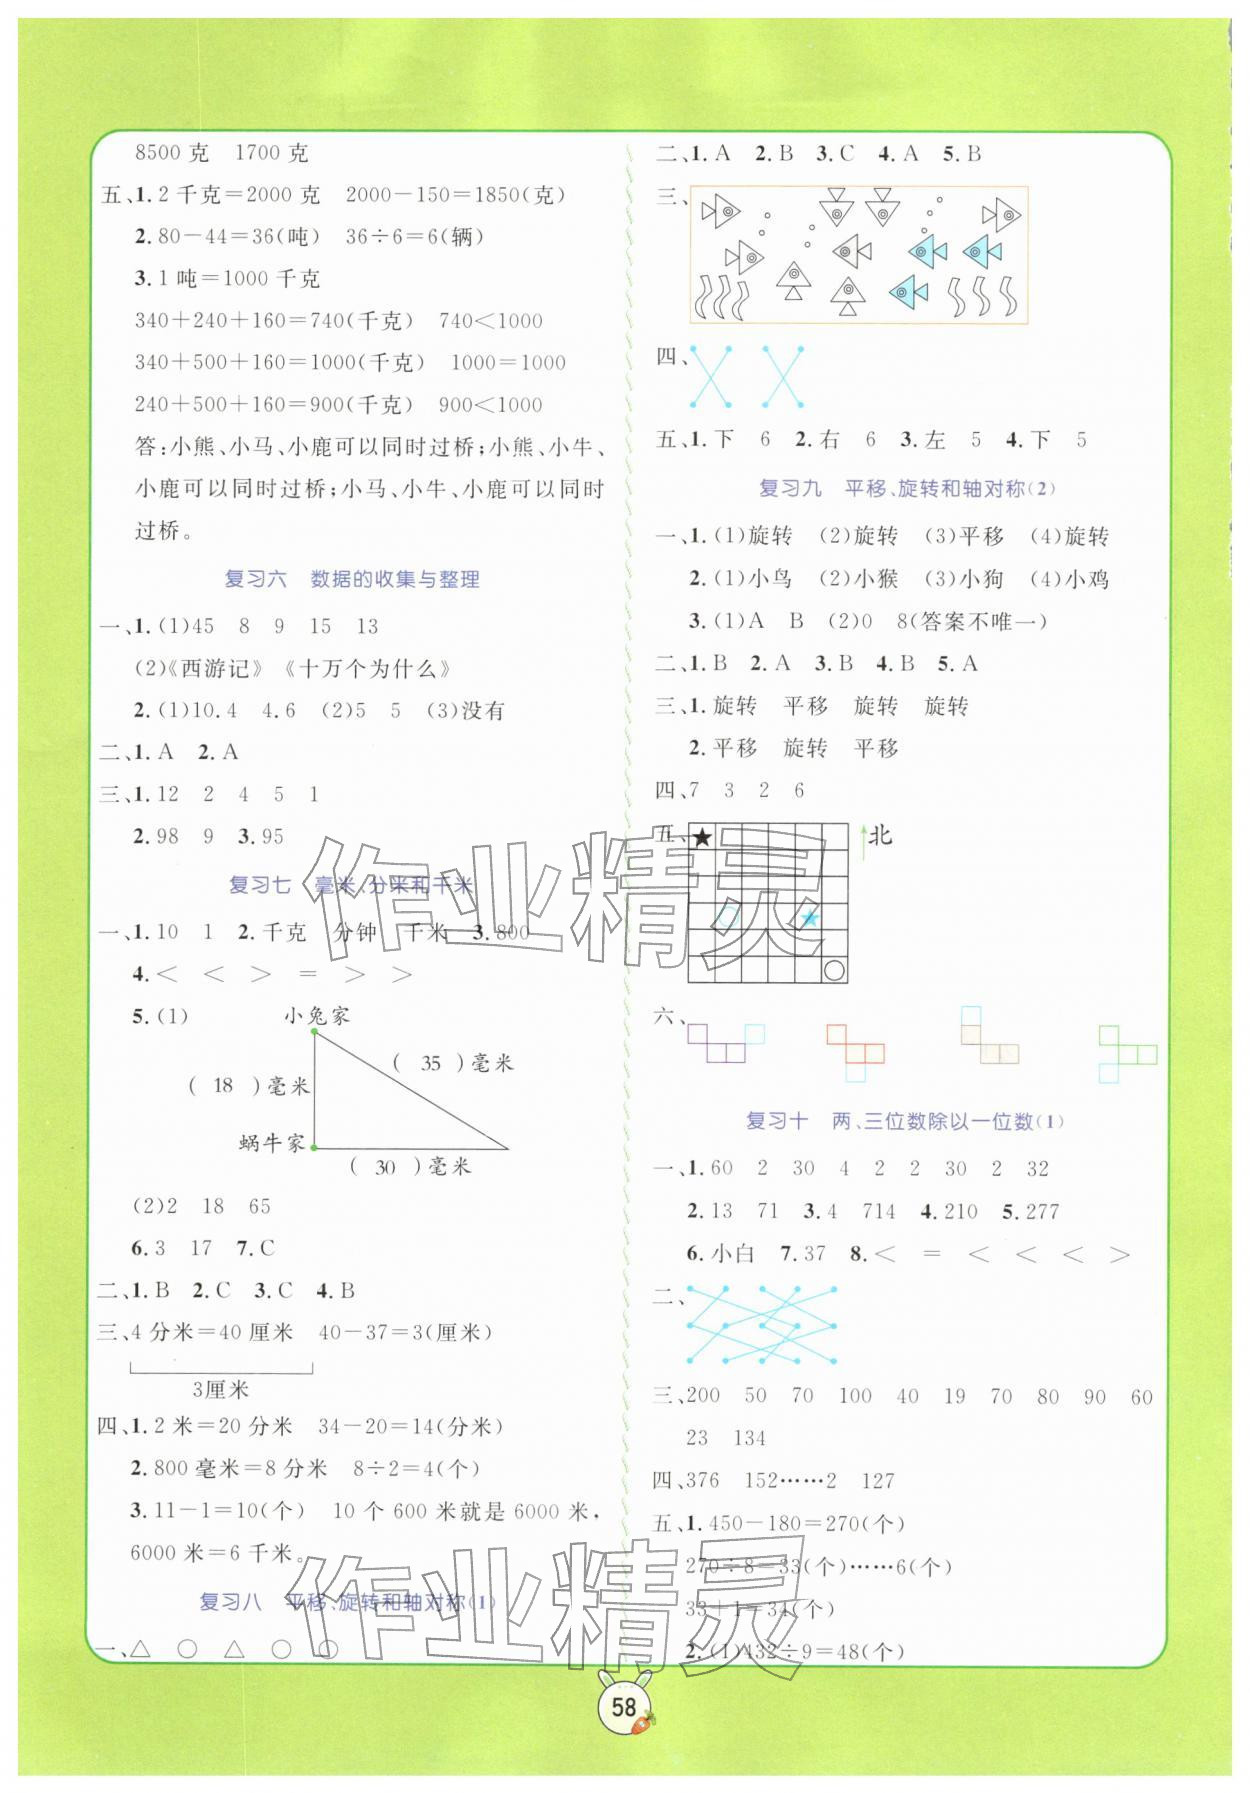 8500克 1700克
五、1.2千克=2000克 2000-150=1850(克)
2.80-44=36(吨) 36÷6=6(辆)
3.1吨=1000千克
340+240+160=740(千克) 740<1000
340+500+160=1000(千克) 1000=1000
240+500+160=900(千克) 900<1000
答:小熊、小马、小鹿可以同时过桥;小熊、小牛、
小鹿可以同时过桥;小马、小牛、小鹿可以同时
过桥。
复习六 数据的收集与整理
一、1.(1)45 8 9 15 13
(2)《西游记》《十万个为什么》
2.(1)10.4 4.6 (2)5 5 (3)没有
二、1.A 2.A
三、1.12 2 4 5 1
2.98 9 3.95
复习七 毫米、分米和千米
一、1.10 1 2.千克 分钟 千米 3.800
4.< < > = > >
5.(1) 小兔家
( 35 )毫米
( 18 )毫米
蜗牛家
( 30 )毫米
(2)2 18 65
6.3 17 7.C
二、1.B 2.C 3.C 4.B
三、4分米=40厘米 40-37=3(厘米)
3厘米
四、1.2米=20分米 34-20=14(分米)
2.800毫米=8分米 8÷2=4(个)
3.11-1=10(个) 10个600米就是6000米,
6000米=6千米。
复习八 平移、旋转和轴对称(1)
一、△ ○ △ ○ ○
二、1.A 2.B 3.C 4.A 5.B
三、
四、
五、1.下 6 2.右 6 3.左 5 4.下 5
复习九 平移、旋转和轴对称(2)
一、1.(1)旋转 (2)旋转 (3)平移 (4)旋转
2.(1)小鸟 (2)小猴 (3)小狗 (4)小鸡
3.(1)A B (2)0 8(答案不唯一)
二、1.B 2.A 3.B 4.B 5.A
三、1.旋转 平移 旋转 旋转
2.平移 旋转 平移
四、7 3 2 6
五、 北
六、
复习十 两、三位数除以一位数(1)
一、1.60 2 30 4 2 2 30 2 32
2.13 71 3.4 714 4.210 5.277
6.小白 7.37 8.< = < < < >
二、
三、200 50 70 100 40 19 70 80 90 60
23 134
四、376 152……2 127
五、1.450-180=270(个)
270÷8=33(个)……6(个)
33+1=34(个)
2.(1)432÷9=48(个)
58
作业精灵
作业精灵